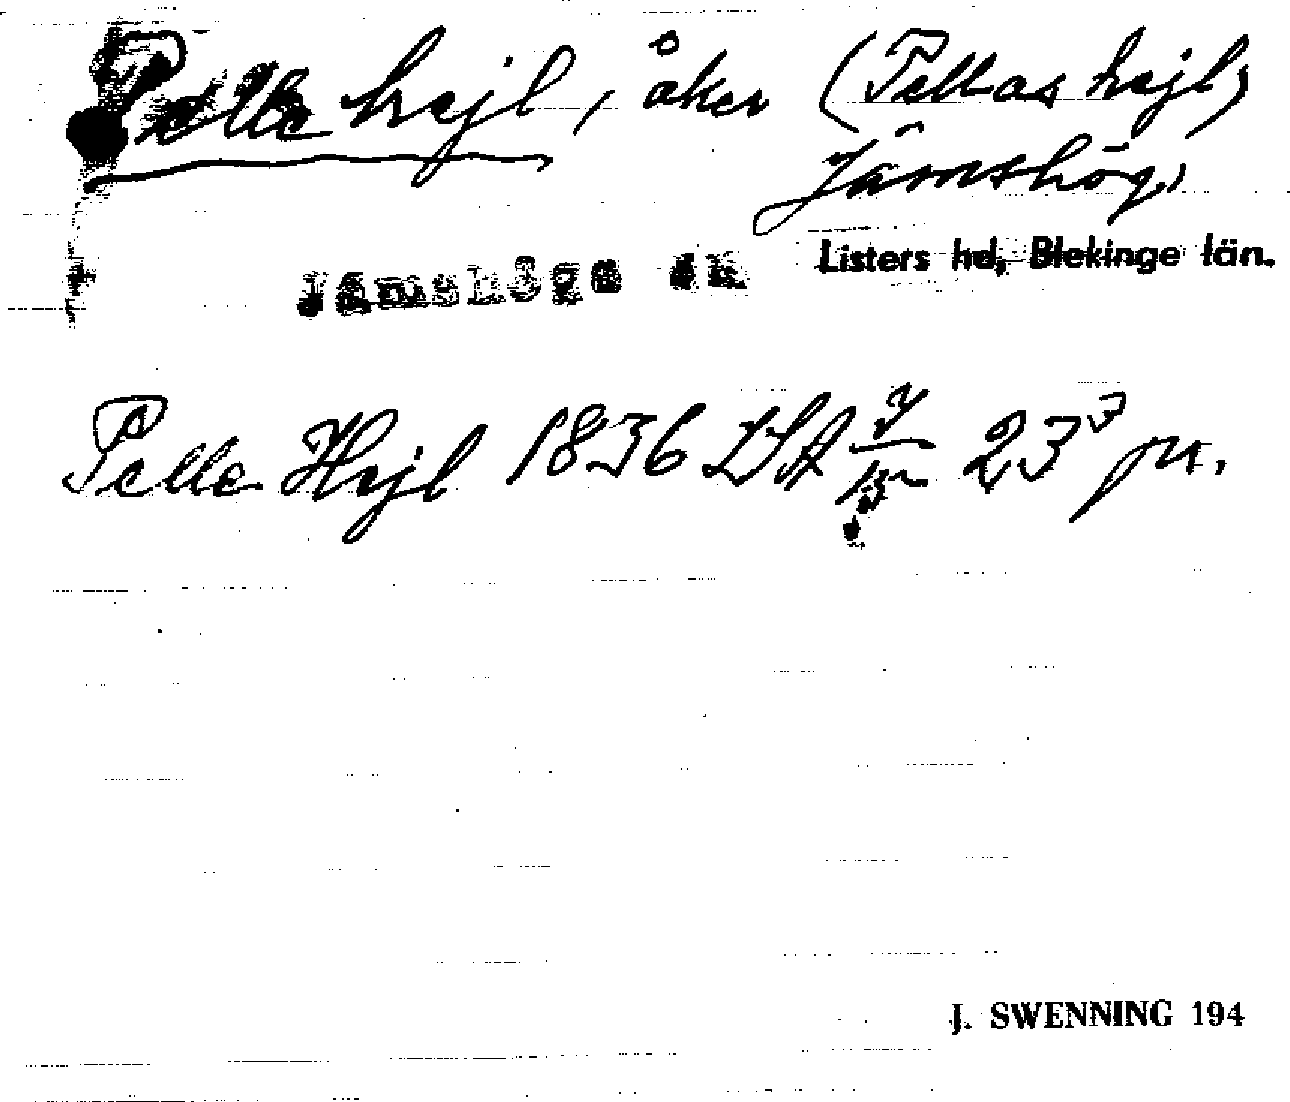 Pelle hejl, åker (Pellas hejl)
Jämshög,
Jämshögs sn Listers hd, Blekinge län.
Pelle Hejl 1836 LSA 23³ pu.
J. SWENNING 194